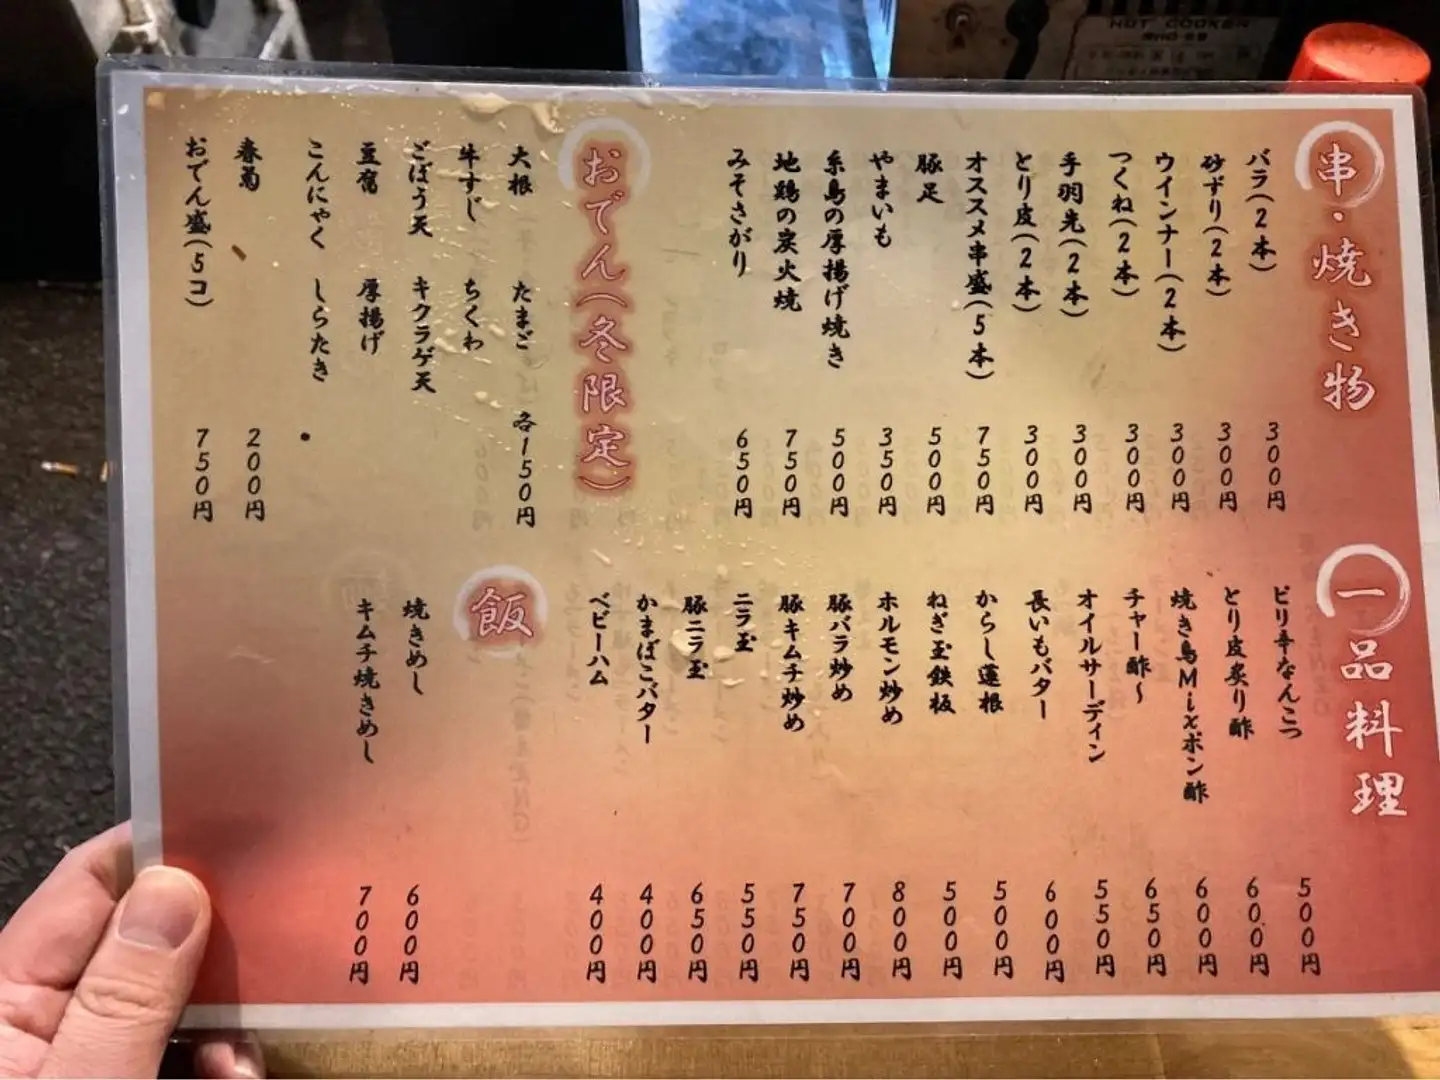 串・焼き物
バラ(2本) 300円
砂ずり(2本) 300円
ウインナー(2本) 300円
つくね(2本) 300円
手羽先(2本) 300円
とり皮(2本) 300円
オススメ串盛(5本) 750円
豚足 500円
やまいも 350円
糸島の厚揚げ焼き 500円
地鶏の炭火焼 750円
みそさがり 650円
おでん(冬限定)
大根 たまご 各150円
牛すじ ちくわ
ごぼう天 キクラゲ天
豆腐 厚揚げ
こんにゃく しらたき
春菊 200円
おでん盛(5コ) 750円
一品料理
ピリ辛なんこつ 500円
とり皮炙り酢 600円
焼き鳥Mixポン酢 600円
チャー酢〜 650円
オイルサーディン 550円
長いもバター 600円
からし蓮根 500円
ねぎ玉鉄板 500円
ホルモン炒め 800円
豚バラ炒め 700円
豚キムチ炒め 750円
ニラ玉 550円
豚ニラ玉 650円
かまぼこバター 400円
ベビーハム 400円
飯
焼きめし 600円
キムチ焼きめし 700円
HOT COOKER